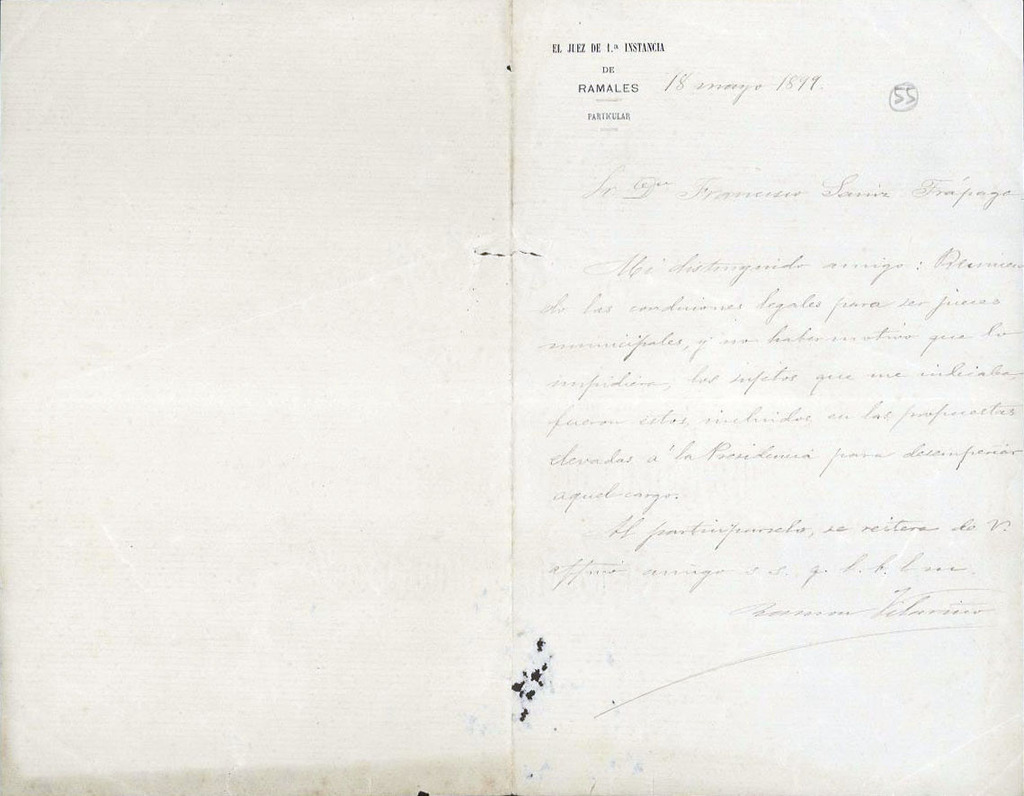 EL JUEZ DE 1.a INSTANCIA
DE
RAMALES
PARTICULAR
18 mayo 1899.
55
Sr Dn Francisco Sainz Trápaga
Mi distinguido amigo: Reunien
do las condiciones legales para ser jueces
municipales, y no haber motivo que lo
impidiera, los sujetos que me indicaba,
fueron estos incluidos en las propuestas
elevadas á la Presidencia para desempeñar
aquel cargo.
Al participárselo, se reitera de V.
affmo amigo s. s. q. l. b. l. m.
Ramon Vilariño